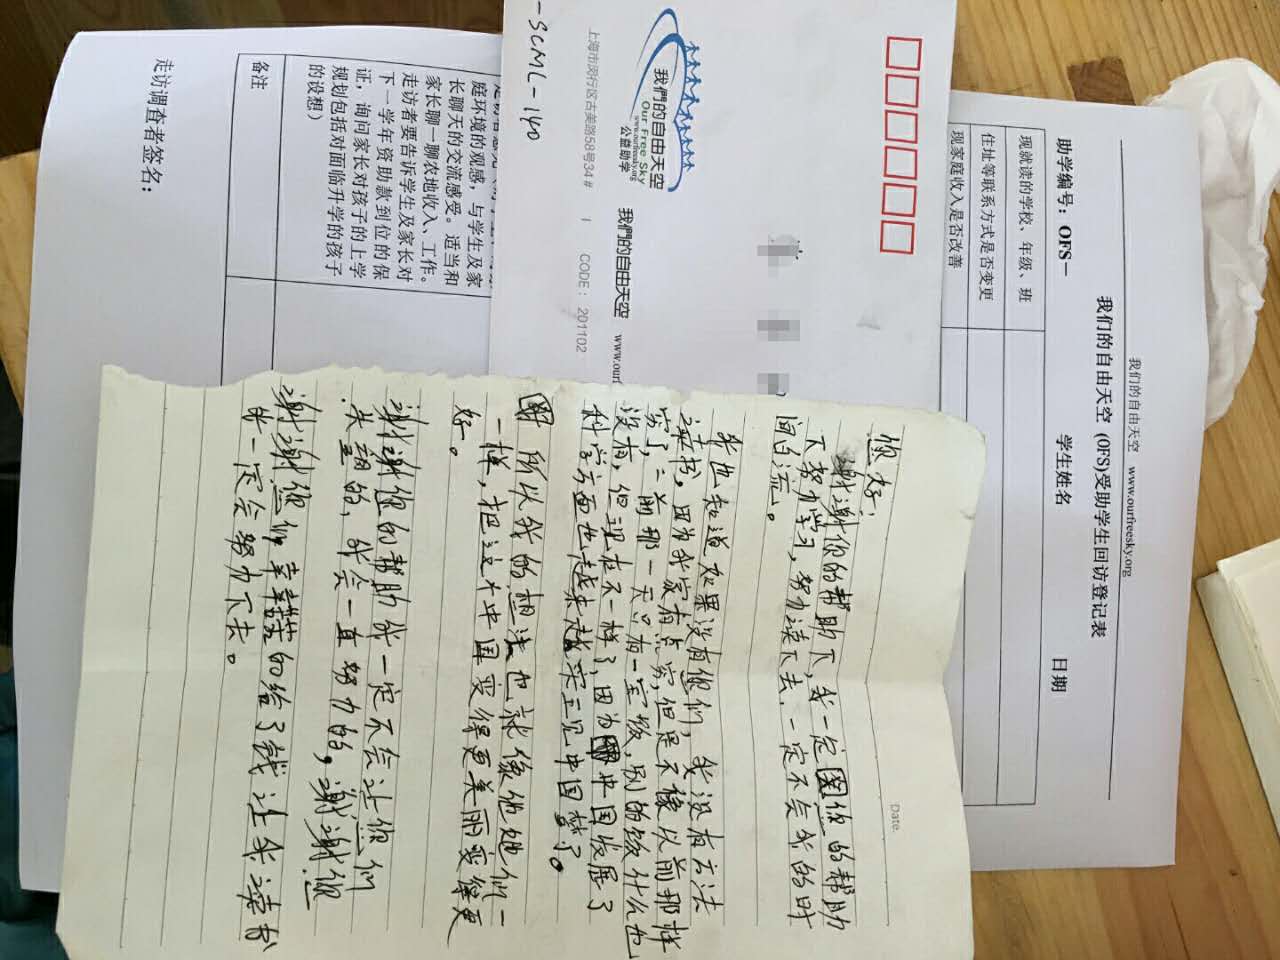 我们的自由天空 www.ourfreesky.org
我们的自由天空 (OFS)受助学生回访登记表
助学编号：OFS－ 学生姓名 日期
现就读的学校、年级、班
住址等联系方式是否变更
现家庭收入是否改善
庭环境的观感，与学生及家
长聊天的交流感受。适当和
家长聊一聊农地收入、工作。
走访者要告诉学生及家长对
下一学年资助款到位的保
证，询问家长对孩子的上学
规划包括对面临升学的孩子
的设想）
备注
走访调查者签名：
我們的自由天空
Our Free Sky
www.ourfreesky.org
公益助学
我們的自由天空 www.ourf
上海市闵行区古美路58弄34# 1 CODE：201102
-SCML-140
Date.
您好：
谢谢你的帮助下，我一定 你的帮助
下努力学习，努力读下去，一定不会我的时
间白流。
我也知道如果没有你们，我没有方法
读书，因为我家有点穷，但是不像以前那样
穷了，以前那一天只有一宝饭，别的饭什么也
没有，但现在不一样了，因为 中国发展了
科学方面也越来越实现中国梦了。
所以我的想法也就像他她们一
一样，把这个中国变得更美丽变得更
好。
谢谢您的帮助我一定不会让您们
失望的，我会一直努力的，谢谢您
谢谢您们幸苦的给了钱让我读书
我一定会努力下去。